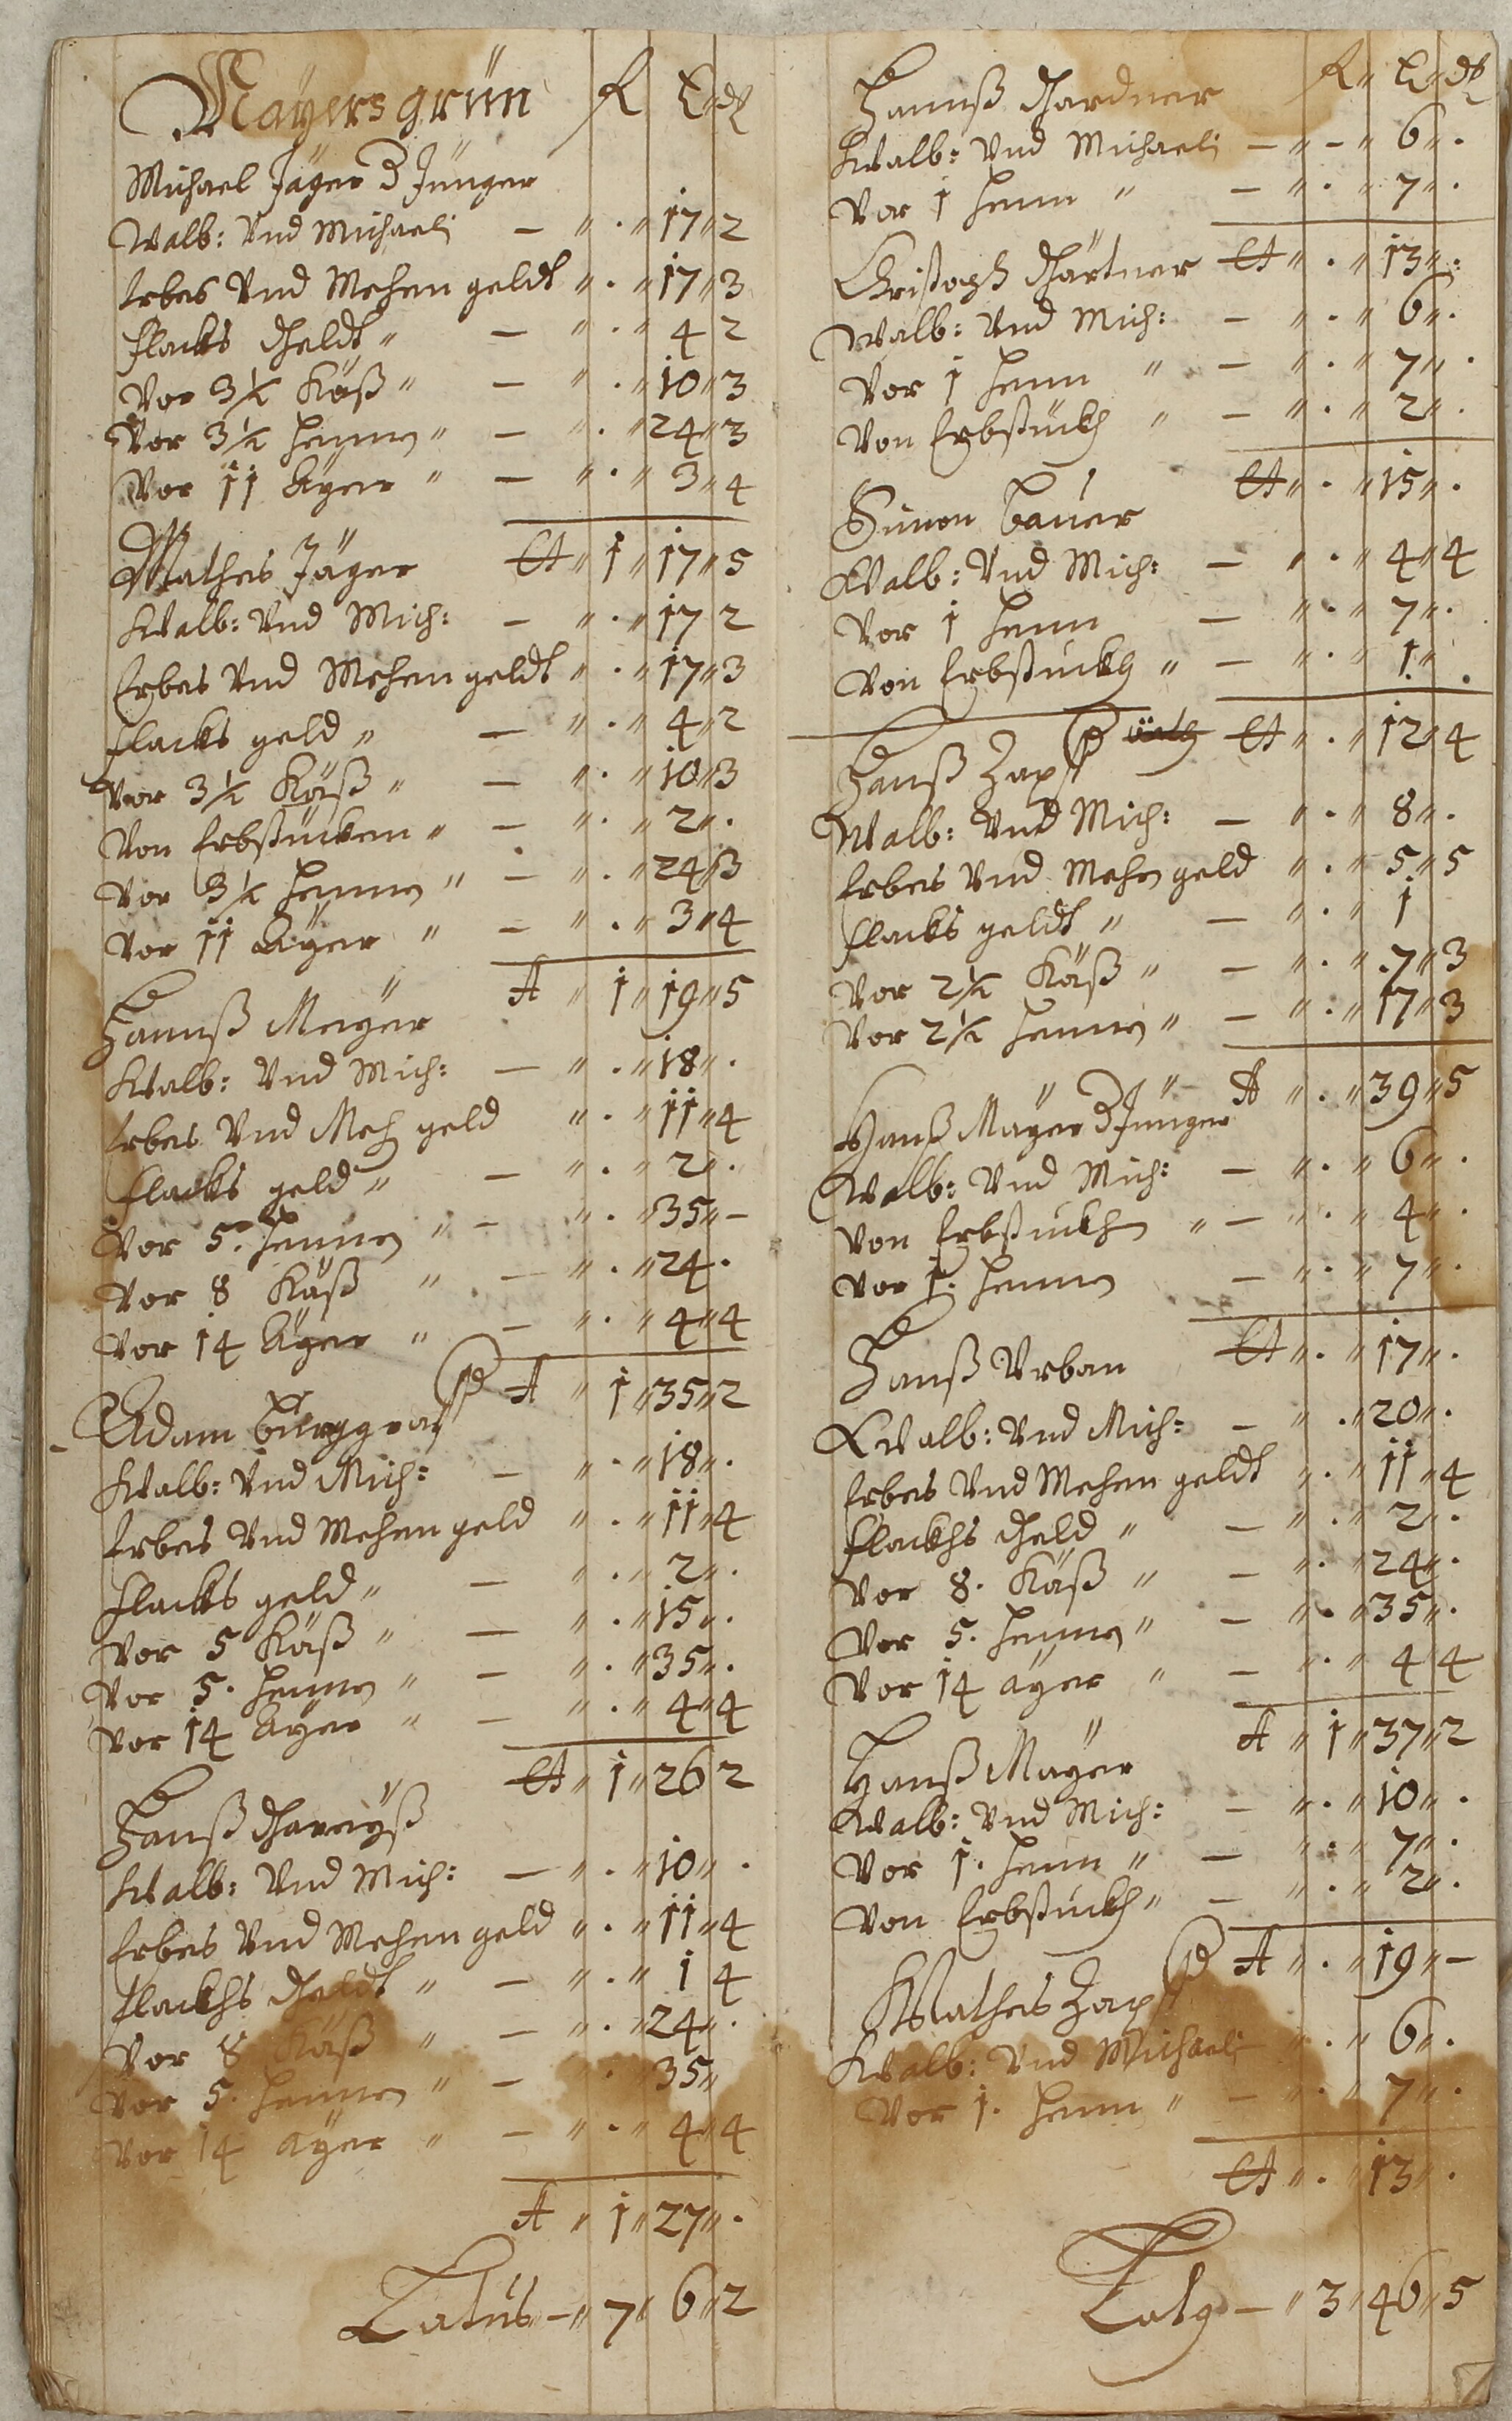 Mayersgrün f x ₰
Michael Jäger d Jünger
Walb: Vnd Michaeli — „ . „ 17 „ 2
Erbes Vnd Mehen geldt „ . „ 17 „ 3
flachs Geldt „ — „ . „ 4 2
Vor 3½ Käß „ — „ . „ 10 „ 3
Vor 3½ Hennen „ — „ . „ 24 „ 3
Vor 11 Ayer „ — „ . „ 3 „ 4
„ 1 „ 17 „ 5
Mathes Jäger
Walb: Vnd Mich: — „ . „ 17 2
Erbes Vnd Mehen geldt „ . „ 17 „ 3
flachs geld „ — „ . „ 4 „ 2
Vor 3½ Käß „ — „ . „ 10 „ 3
Von Erbstücken „ — „ . „ 2 „ .
Vor 3½ Hennen „ — „ . „ 24 „ 3
Vor 11 Ayer „ — „ . „ 3 „ 4
„ 1 „ 19 „ 5
Hannß Meyer
Walb: Vnd Mich: — „ . „ 18 „ .
Erbes Vnd Meh geld „ . „ 11 „ 4
flachs geld „ — „ . „ 2 „ .
Vor 5. Hennen „ — „ . „ 35 „ –
Vor 8 Käß „ — „ . „ 24 .
Vor 14 Ayer „ — „ . „ 4 „ 4
„ 1 „ 35 „ 2
Adam Burggraf
Walb: Vnd Mich: — „ . „ 18 „ .
Erbes Vnd Mehen geld „ . „ 11 „ 4
flachs geld „ — „ . „ 2 „ .
Vor 5 Käß „ — „ . „ 15 „ .
Vor 5. Hennen „ — „ . „ 35 „ .
Vor 14 Ayer „ — „ . „ 4 „ 4
„ 1 „ 26 2
Hanß
Walb: Vnd Mich: — „ . „ 10 „ .
Erbes Vnd Mehen geld „ . „ 11 „ 4
flachs Geldt „ — „ . „ 1 4
Vor 8 Käß „ — „ . „ 24 „ .
Vor 5. Hennen „ — „ . „ 35 „
Vor 14 Ayer „ — „ . „ 4 „ 4
„ 1 „ 27 „ .
Latus — „ 7 „ 6 „ 2
Hannß Gardner f „ x „ ₰
Walb: Vnd Michaeli — „ – „ 6 „ .
Vor 1 Henn „ — „ . „ 7 „ .
„ . „ 13 „ :
Christoph Gärtner
Walb: Vnd Mich: — „ . „ 6 „ .
Vor 1 Henn „ — „ . „ 7 „ .
Von Erbstückh „ — „ . „ 2 „ .
„ . „ 15 „ .
Simon Bauer
Walb: Vnd Mich: — „ . „ 4 „ 4
Vor 1 Henn — „ . „ 7 „ .
Von Erbstückh „ — „ . „ 1 „ .
„ . „ 12 „ 4
Hanß Zapf
Walb: Vnd Mich: — „ . „ 8 „ .
Erbes Vnd Mehen geld „ . „ 5 „ 5
flachs geldt „ — „ . „ 1
Vor 2½ Käß „ — „ . „ 7 „ 3
Vor 2½ Hennen „ — „ . „ 17 „ 3
„ . „ 39 „ 5
Hanß Mayer d Jünger
Walb: Vnd Mich: — „ . „ 6 „ .
Von Erbstückhen „ — „ . „ 4 „ .
Vor 1. Hennen — „ . „ 7 „ .
„ . „ 17 „ .
Hanß Vrban
Walb: Vnd Mich: — „ . „ 20 „ .
Erbes Vnd Mehen geldt „ . „ 11 „ 4
flachs Geld „ — „ . „ 2 „ .
Vor 8. Käß „ — „ . „ 24 „ .
Vor 5. Hennen „ — „ . „ 35 „ .
Vor 14 ayer „ — „ . „ 4 4
„ 1 „ 37 „ 2
Hanß Mayer
Walb: Vnd Mich: — „ . „ 10 „ .
Vor 1. Henn „ — „ : „ 7 „ .
Von Erbstückh „ — „ . „ 2 „ .
„ . „ 19 „ –
Mathes Zapf
Walb: Vnd Michaeli „ . „ 6 „ .
Vor 1. Henn „ — „ . „ 7 „ .
„ . „ 13 „ .
Latg — „ 3 „ 46 „ 5